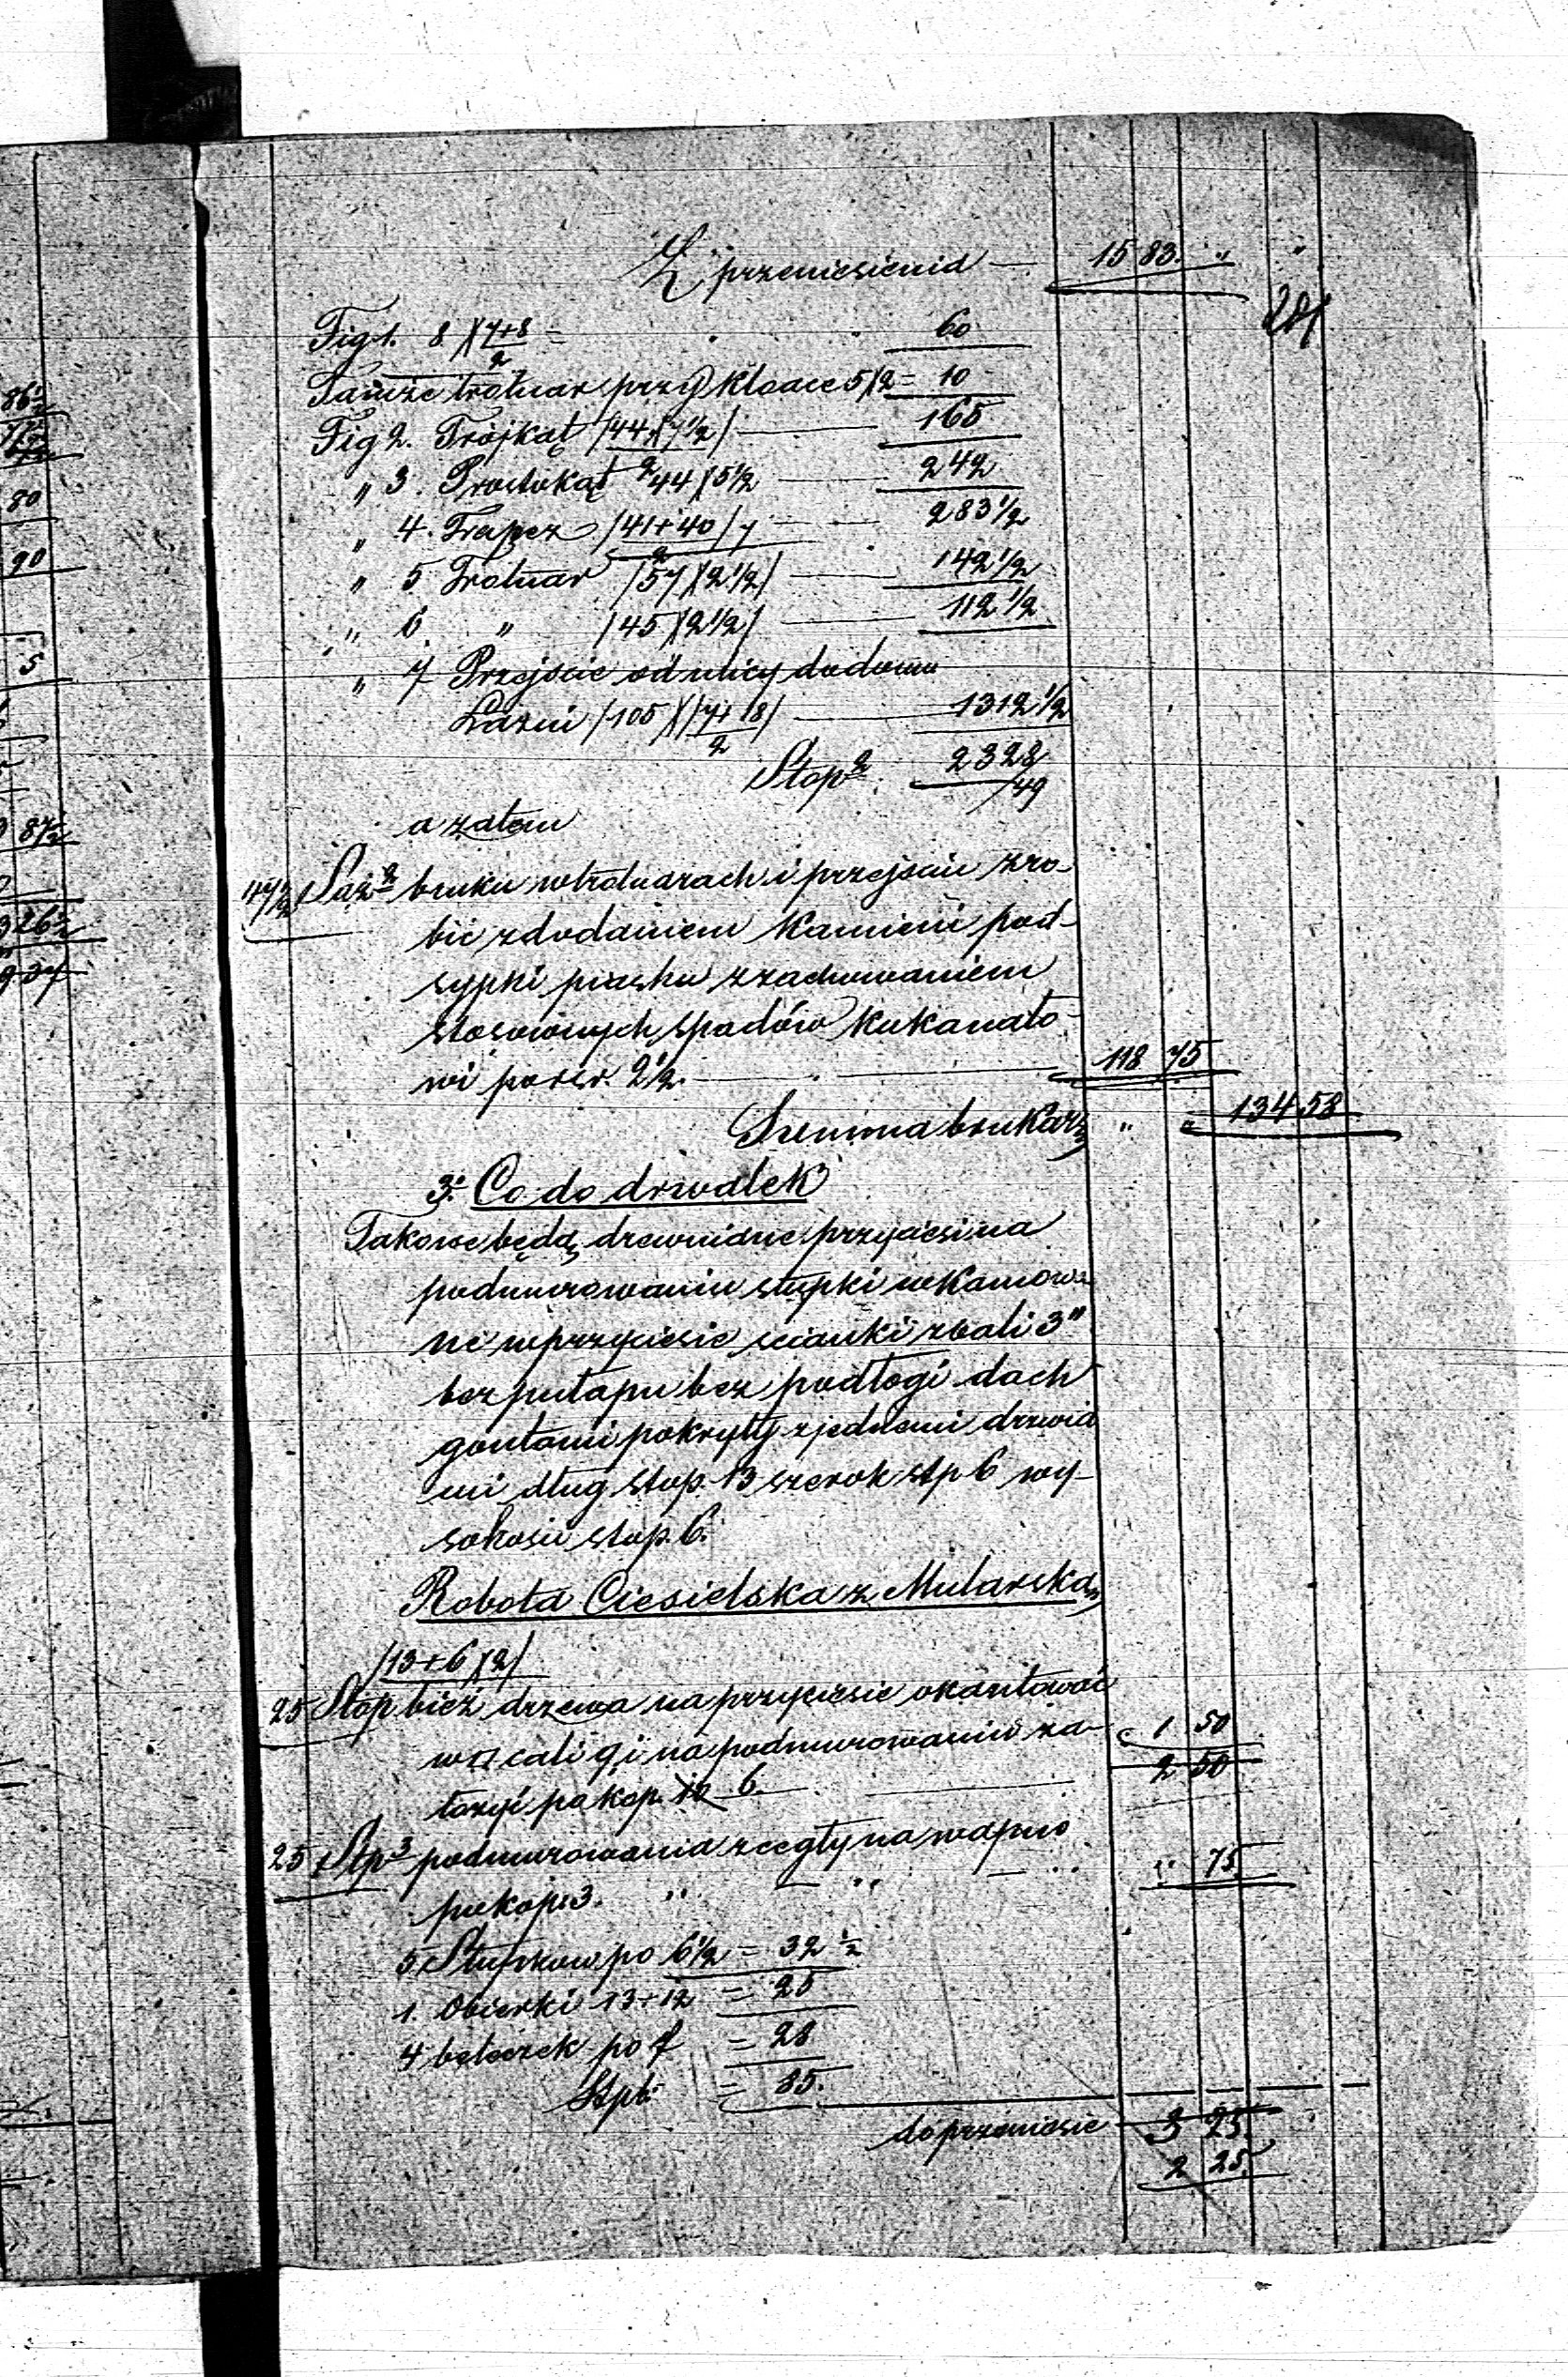 Z przeniesienia — 15 83. " "
281
Fig 1. 8 )( 7+8/2 = 60
Tamże trotuar przy Kloace 5)(2 = 10
Fig 2. Trójkąt /44)(7½/ 2 — 165
" 3. Prostokąt 44)(5½ — 242
" 4. Trapez /41+40/ 7 2 — 283½
" 5 Trotuar /57)(2½/ — 142½
" 6 " /45)(2½/ — 112½
" 7 Przejście od ulicy do domu
Łazni /105)(/7+18/ 2 — 1312½
Stop 2 2328
/49
a zatem
47½ Sąż 2 bruku w trotuarach i przejściu zro-
bić z dodaniem Kamieni pod-
sypki piasku z zachowaniem
stosownych spadów ku kanało-
wi po rsr. 2½. — 118 75
Summa brukarz " " 134 58
3. Co do drwalek
Takowe będą drewniane przyciesi na
podmurowaniu słupki wkanowa
ne w przyciesie scianki z bali 3"
bez pułapu bez podłogi dach
gontami pokryty z jednemi drzwia
mi dług stop. 13 szerok stp 6 wy-
sokości stop. 6.
Robota Ciesielska z Mularską
/13+6)(2/
25 Stop bież drzewa na przyciesie okantować
w □ cali 9 i na podmurowaniu za-
łożyć po kop. 10 6. — 1 50
2 50
25 Stp 3 podmurowania z cegły na wapno
po kop. 3. " — " — " " 75
5 Słupków po 6½ = 32½
1. Obierki 13+12 = 25
4 beleczek po 7 = 28
Stp b: = 85.
do przeniesie 3 25.
2 25.
86½
80
90
5
87½
326½
937